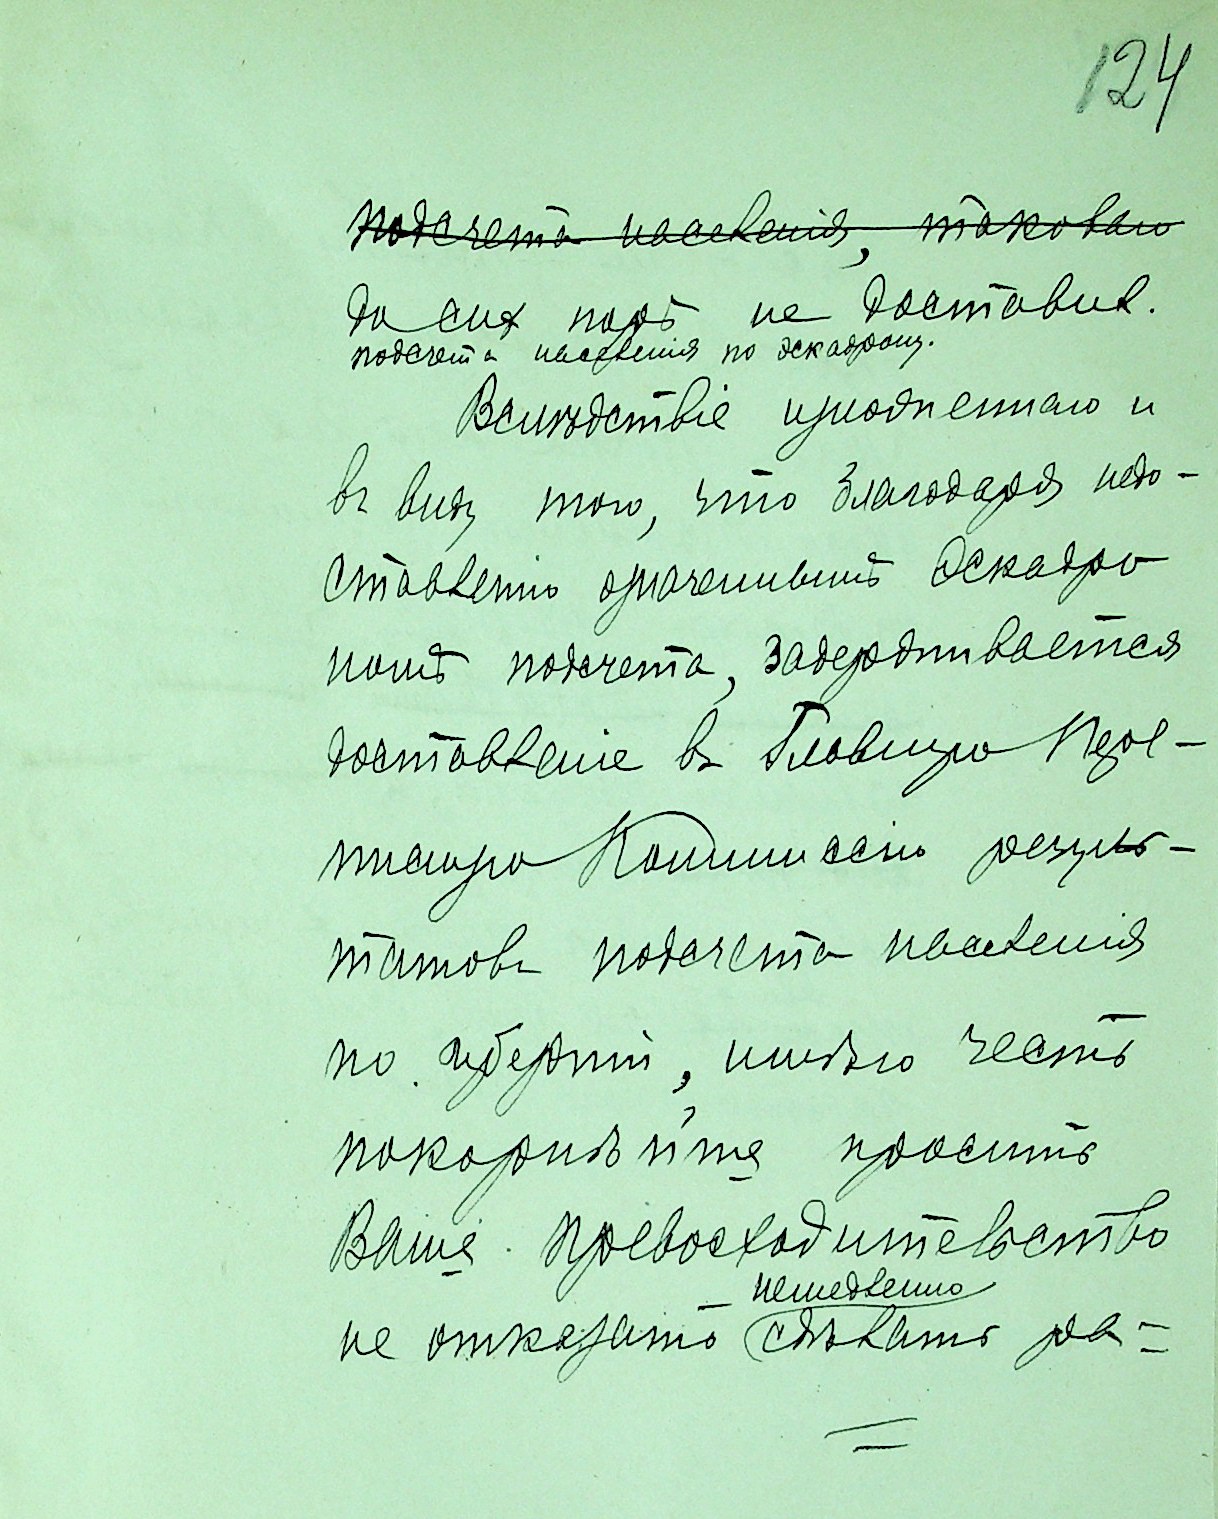 124
подсчета населенія, таковаго
до сих поръ не доставил.
подсчета населенія по эскадрону.
Вслѣдствіе изложеннаго и
въ виду того, что благодаря недо-
ставленію означеннымъ Эскадро
номъ подсчета, задерживается
доставленіе въ Главную Пере-
писную Коммиссію резуль-
татовъ подсчета населенія
по губерніи, имѣю честь
покорнѣйше просить
Ваше Превосходительство
немедленно
не отказать сдѣлать ра-